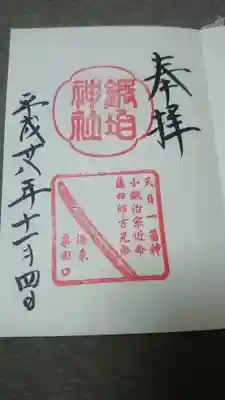 奉拝
鍛冶神社
天目一箇神
小鍛治宗近命
藤四郎吉光命
洛東
粟田口
平成廿八年十一月四日